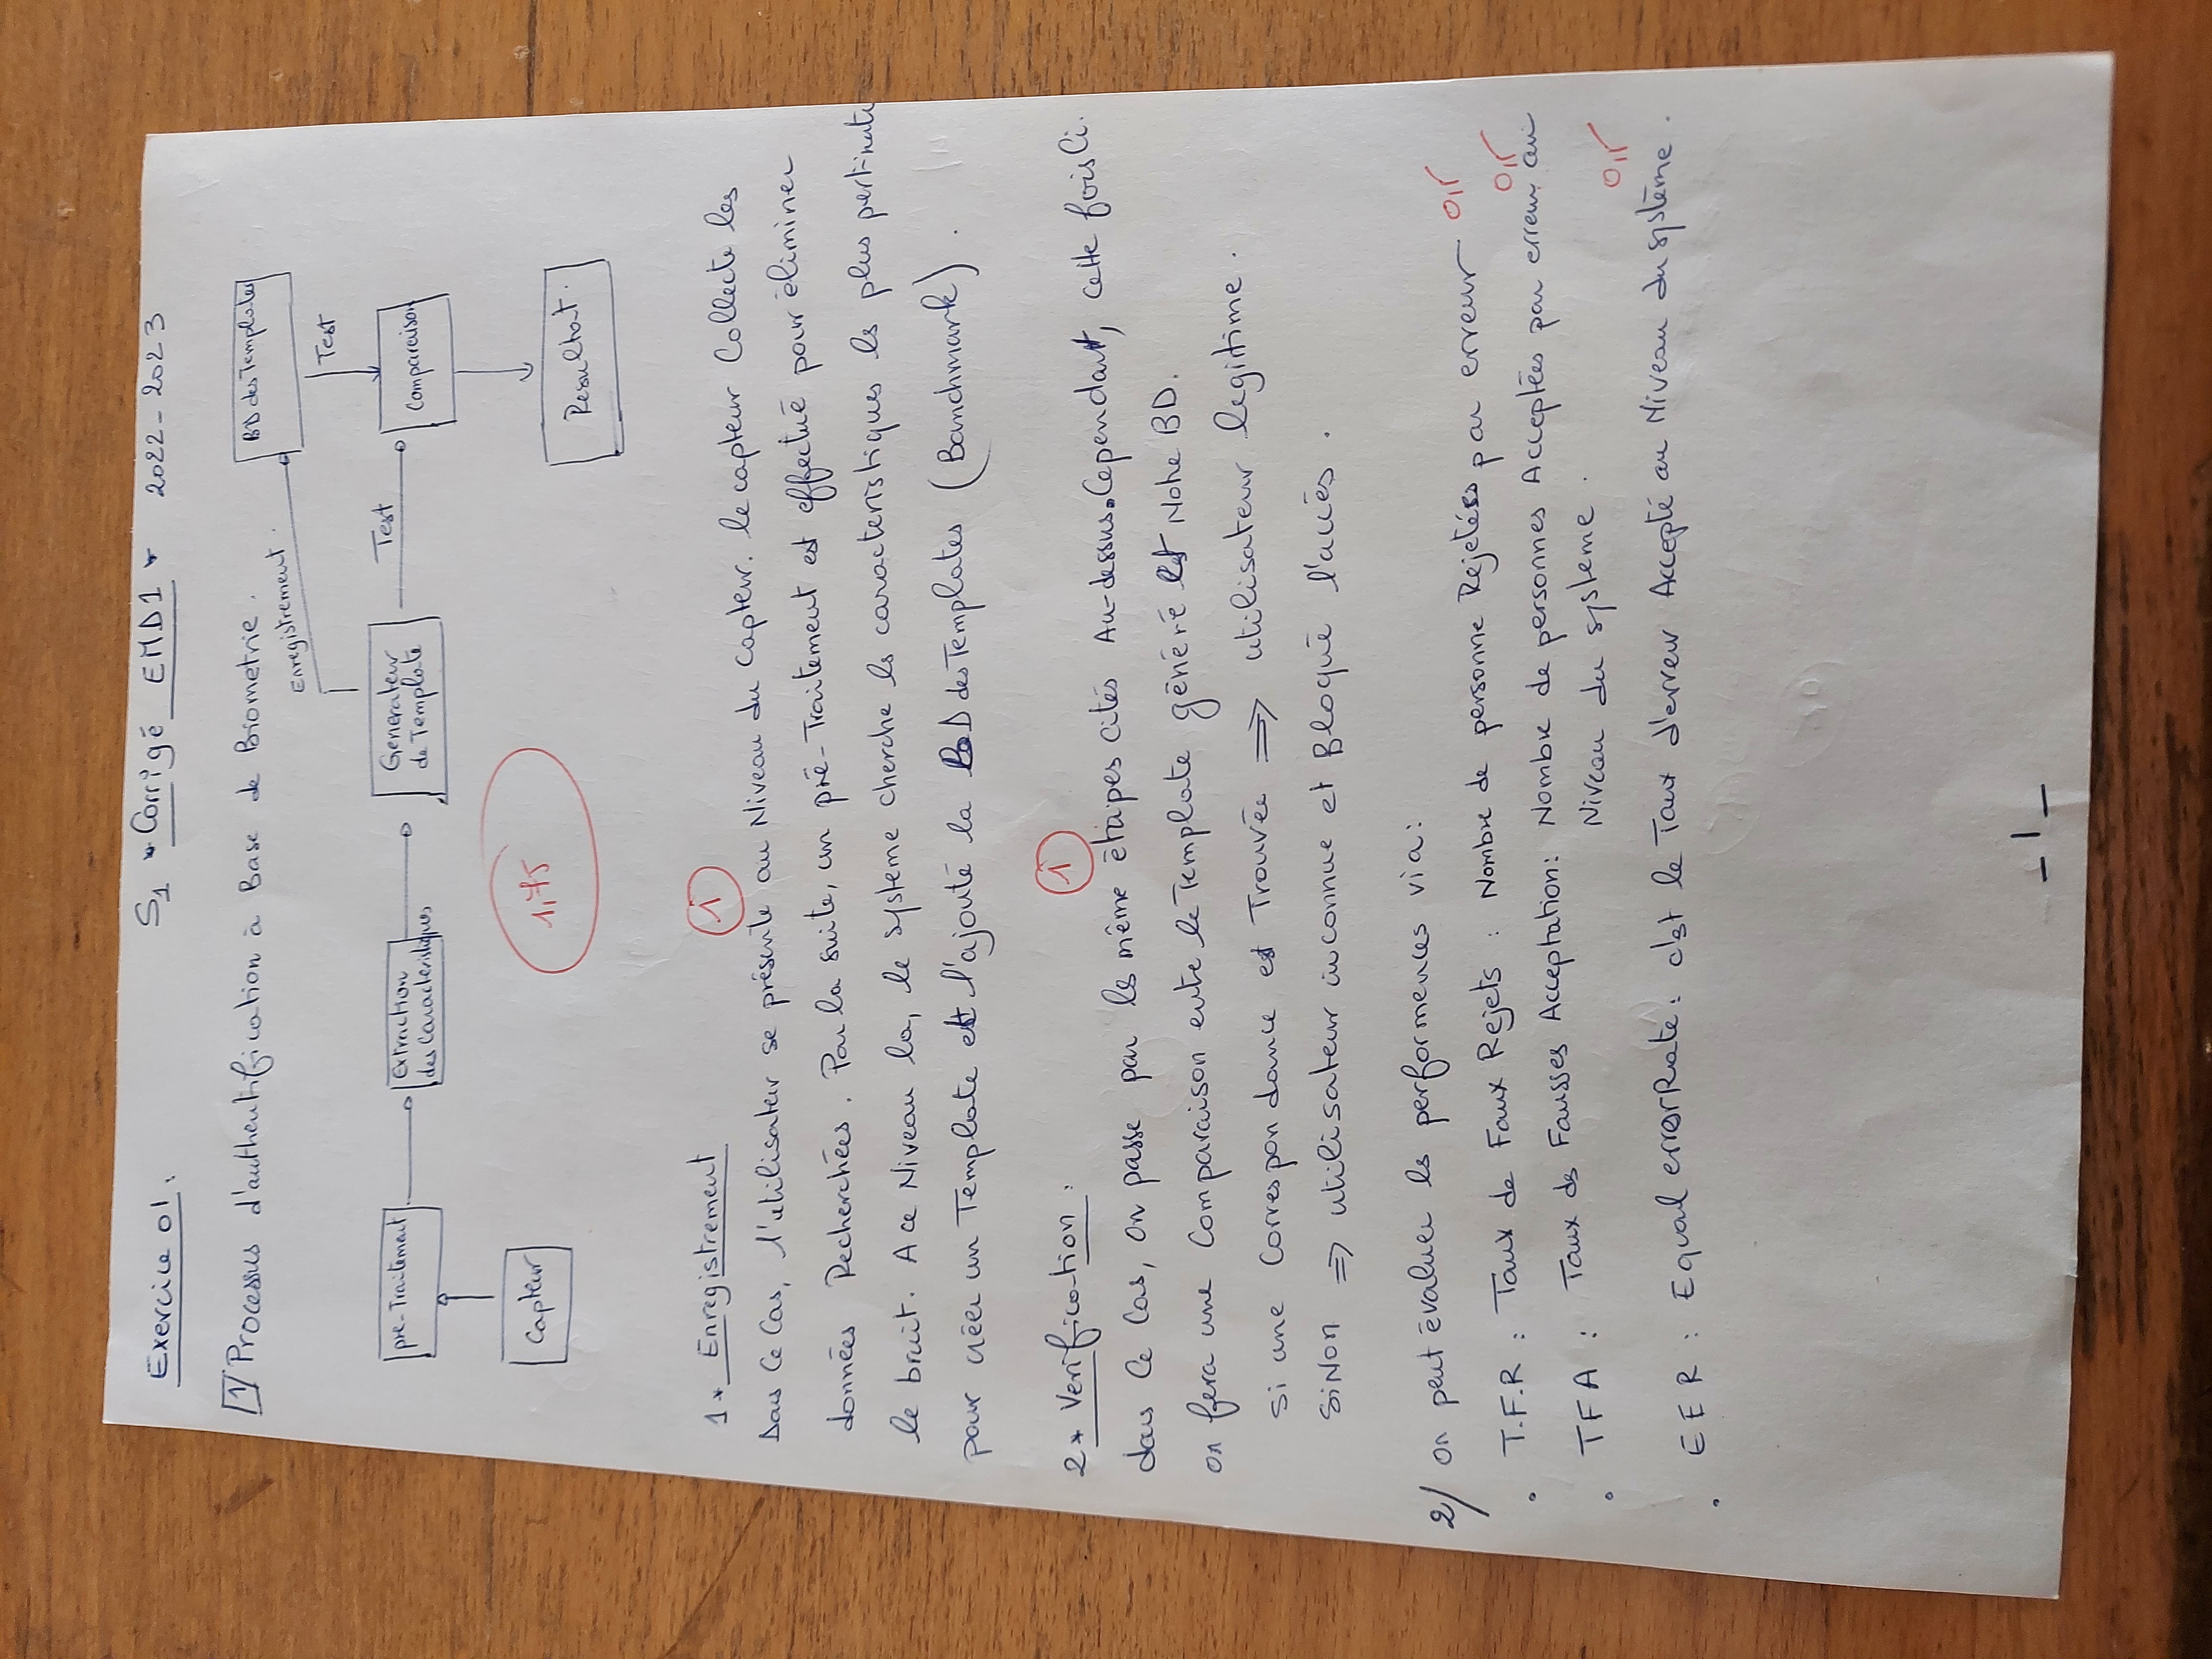 Exercice 01:
S1 * Corrigé EMD1 * 2022-2023
1/ Processus d'authentification à Base de Biometrie.
BD des Templates
Enregistrement
Test
pré-Traitement
Extraction
des Caracteristiques
Generateur
de Template
Test
Comparaison
Capteur
1,75
Resultat.
1* Enregistrement
1
Dans Ce Cas, l'utilisateur se présente au Niveau du Capteur. le capteur Collecte les
données Recherchées. Par la suite, un pré-Traitement est effectué pour éliminer
le bruit. A ce Niveau la, le système cherche les caracteristiques les plus pertinate
pour créer un Template et l'ajouté la BD des Templates (Banchmark).
2* Verification:
1
dans Ce Cas, on passe par les même étapes cités Au-dessus. Cependant, cette fois Ci.
on fera une Comparaison entre le Template généré et Notre BD.
Si une Correspondance est Trouvée ⇒ utilisateur legitime.
SiNon ⇒ utilisateur inconnue et Bloqué l'accès.
2/ on peut évaluer les performences via:
. T.F.R : Taux de Faux Rejets : Nombre de personne Rejetées par erreur 0,5
. TFA : Taux des Fausses Acceptation: Nombre de personnes Acceptées par erreur au 0,5
Niveau du système.
. EER : Equal error Rate: c'est le Taux d'erreur Accepté au Niveau du système. 0,5
_ 1 _